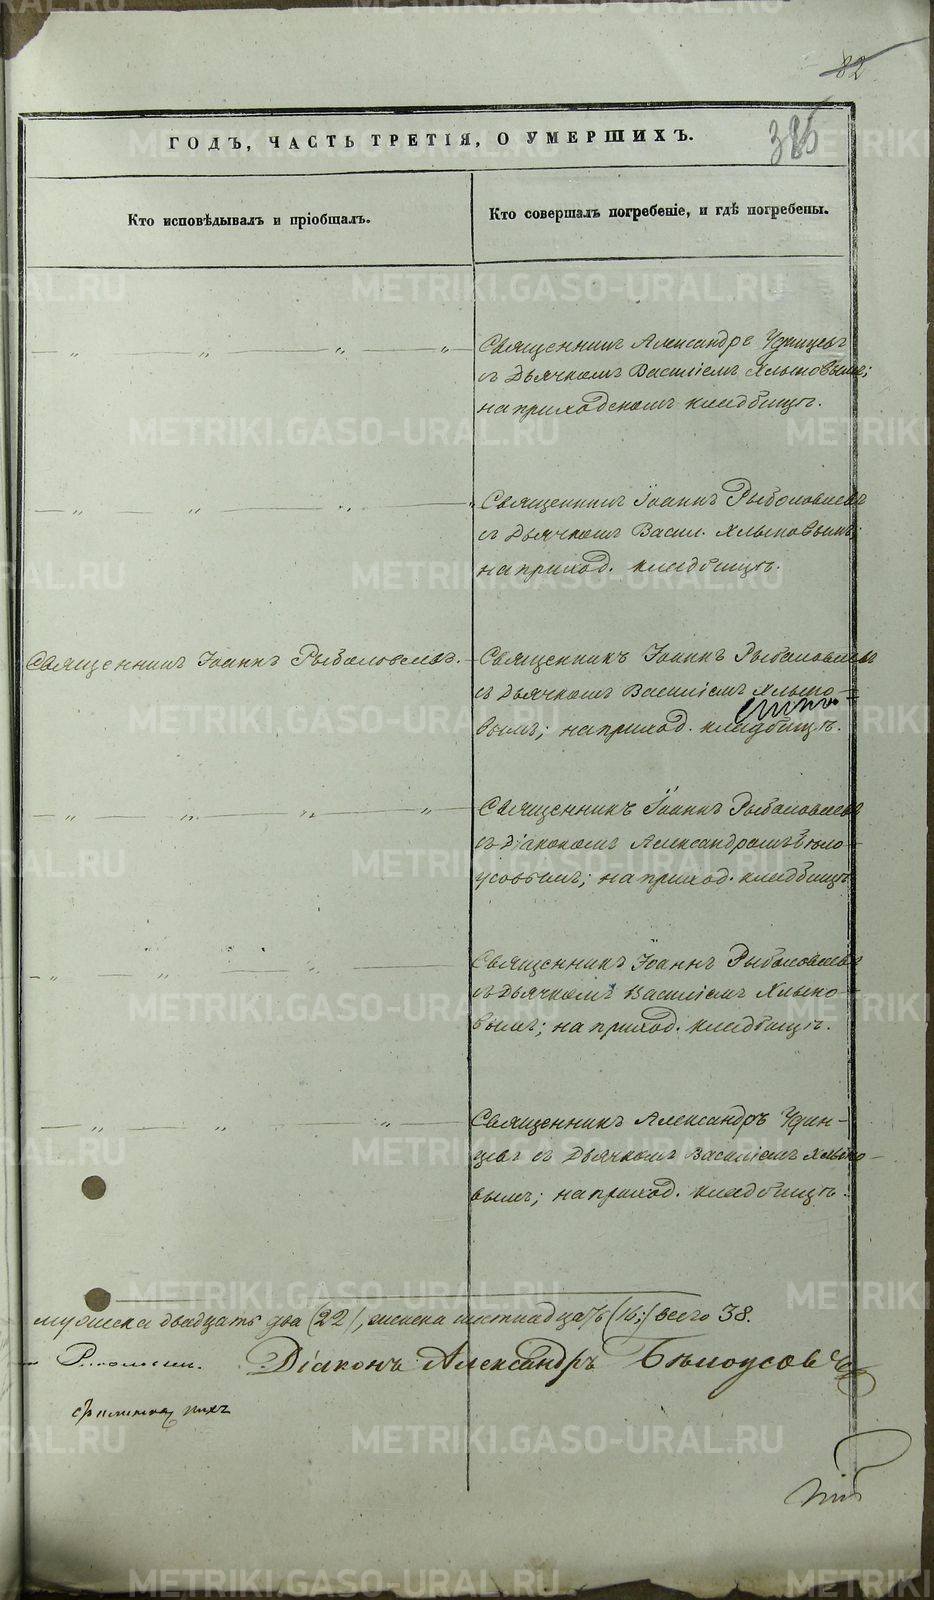 82
385
ГОДЪ, ЧАСТЬ ТРЕТІЯ, О УМЕРШИХЪ.
Кто исповѣдывалъ и пріобщалъ.
Кто совершалъ погребеніе, и гдѣ погребены.
Священникъ Александръ Удинцевъ
съ Дьячкомъ Василіемъ Хлыновымъ;
на приходскомъ кладбищѣ.
Священникъ Іоаннъ Рыболовлевъ
съ Дьячкомъ Васил. Хлыновымъ;
на приход. кладбищѣ.
Священникъ Іоаннъ Рыболовлевъ.
Священникъ Іоаннъ Рыболовлевъ
съ Дьячкомъ Василіемъ Хлыно-
вымъ; на приход. кладбищѣ.
Священникъ Іоаннъ Рыболовлевъ
съ Діакономъ Александромъ Бѣло-
усовымъ; на приход. кладбищѣ
Священникъ Іоаннъ Рыболовлевъ
съ Дьячкомъ Василіемъ Хлыно-
вымъ; на приход. кладбищѣ.
Священникъ Александръ Удин-
цевъ съ Дьячкомъ Василіемъ Хлыно-
вымъ; на приход. кладбищѣ.
мужеска двадцать два (22), женска шестнадцать (16;) всего 38.
Діаконъ Александръ Бѣлоусовъ
METRIKI.GASO-URAL.RU